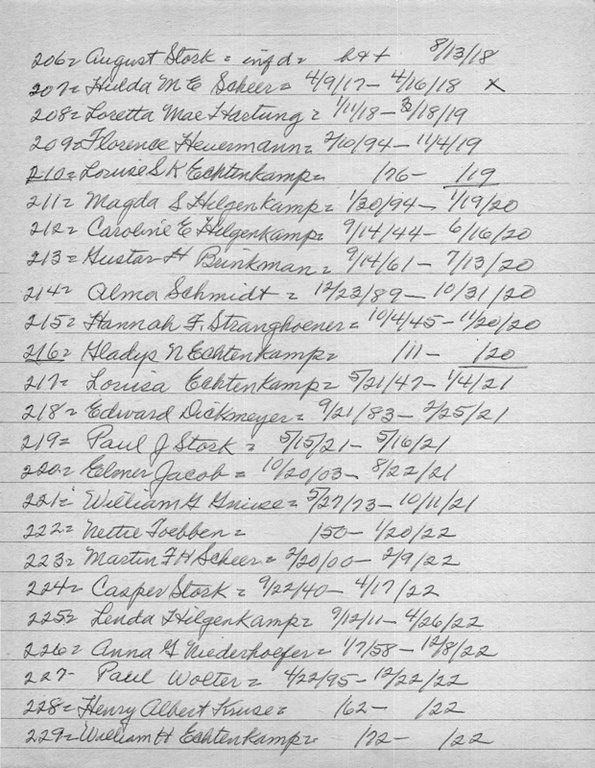 206= August Stork = infd = b&+ 8/13/18
207= Hulda M E Scheer = 4/9/17 - 4/16/18 x
208= Loretta Mae Hartung = 1/11/18 - 3/18/19
209= Florence Heuermann = 2/10/94 - 11/4/19
210= Louise S K Echtenkamp = /76 - /19
211= Magda S Hilgenkamp = 1/20/94 - 1/19/20
212= Caroline E Hilgenkamp = 9/14/44 - 6/16/20
213= Gustav H Brinkman = 9/14/61 - 7/13/20
214= Alma Schmidt = 12/23/89 - 10/31/20
215= Hannah F. Stranghoener = 10/4/45 - 11/20/20
216= Gladys N Echtenkamp = /11 - /20
217= Louisa Echtenkamp = 5/21/47 - 1/4/21
218= Edward Dickmeyer = 9/21/83 - 2/25/21
219= Paul J Stork = 5/15/21 - 5/16/21
220= Elmer Jacob = 10/20/03 - 8/22/21
221= William G Gniese = 5/27/73 - 10/11/21
222= Nettie Toebben = /50 - 1/20/22
223= Martin F H Scheer = 2/20/00 - 2/9/22
224= Casper Stork = 9/22/40 - 4/17/22
225= Lenda Hilgenkamp = 9/12/11 - 4/26/22
226= Anna G Niederhoefer = 1/7/58 - 12/8/22
227- Paul Wolter = 4/22/95 - 12/22/22
228= Henry Albert Kruse = /62 - /22
229= William H Echtenkamp = /72 - /22